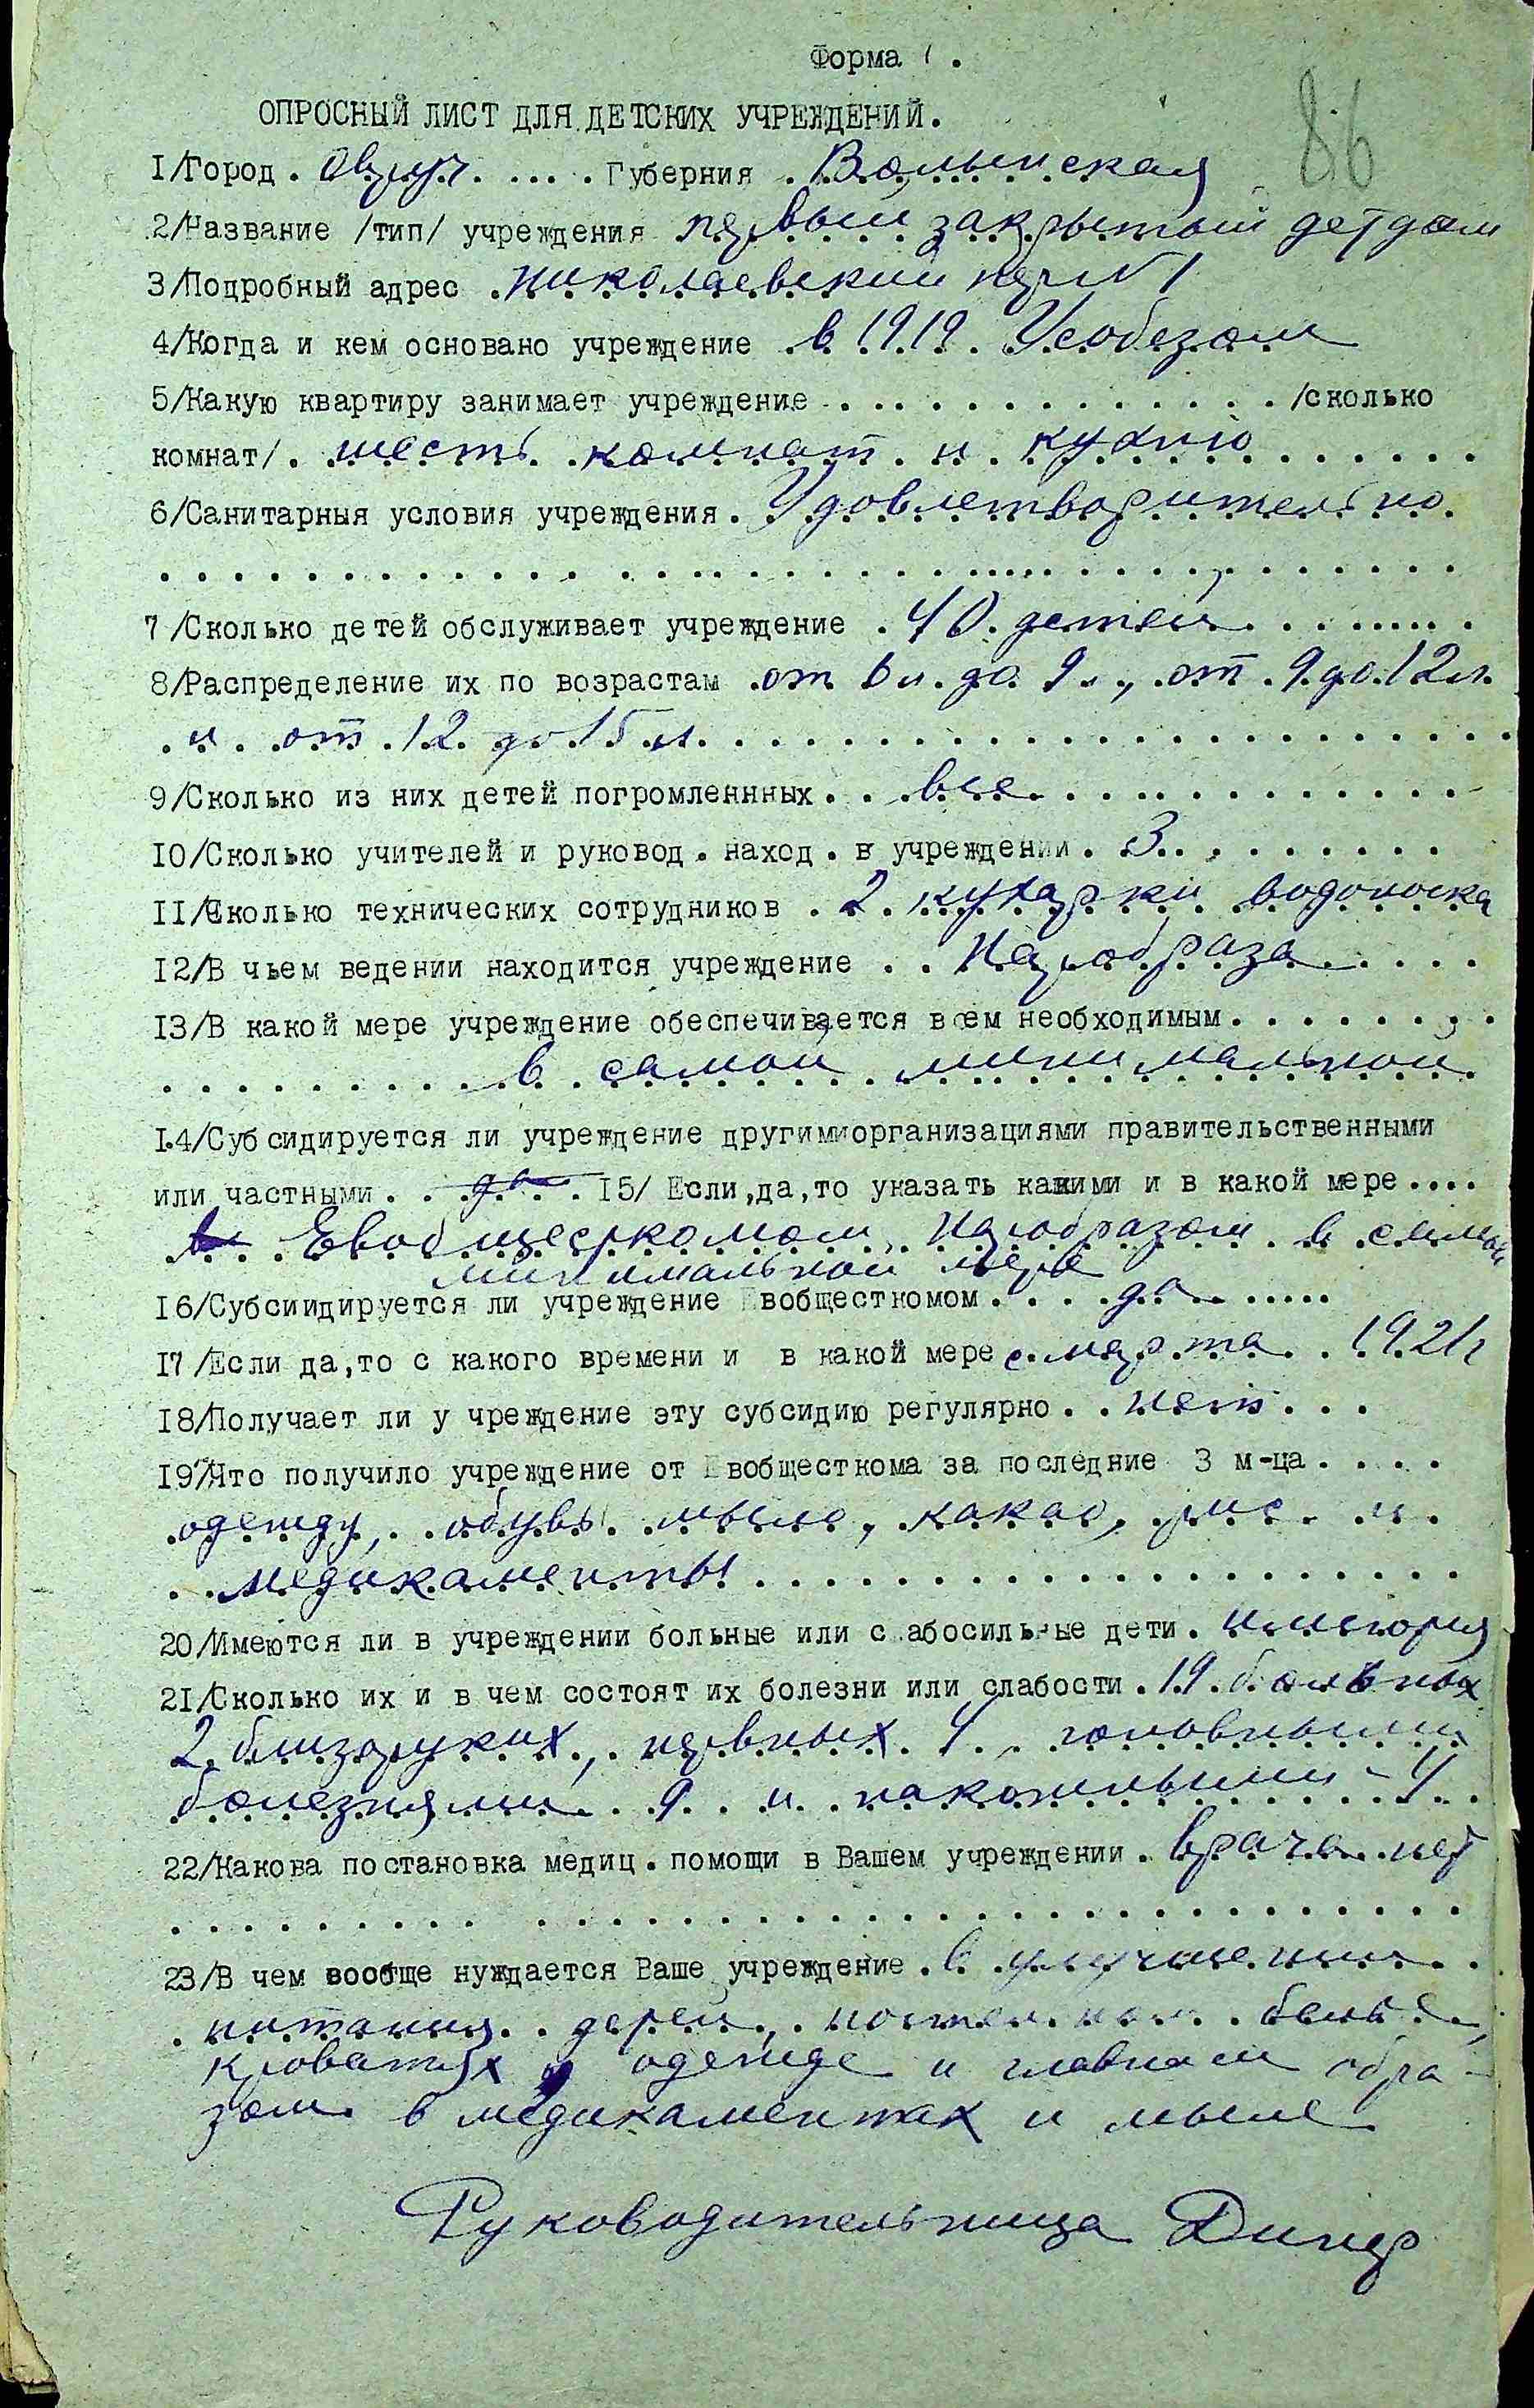 Форма 1.
86
ОПРОСНЫЙ ЛИСТ ДЛЯ ДЕТСКИХ УЧРЕЖДЕНИЙ.
I/Город . Овруч. .... . Губерния . Волынская
2/Название /тип/ учреждения первый закрытый детдом
3/Подробный адрес . Николаевский пер №1
4/Когда и кем основано учреждение . в 1919. Усобезом
5/Какую квартиру занимает учреждение . . . . . . . . . . . . . . /сколько
комнат/. шесть комнат и кухню . . . . . .
6/Санитарныя условия учреждения. Удовлетворительно.
. . . . . . . . . . . . . . . . . . . . . . . . . . . . . .
7/Сколько детей обслуживает учреждение . 40 детей. . . . . . . . .
8/Распределение их по возрастам . от 6 л. до 9 л., от 9 до 12 л.
и от 12 до 15 л. . . . . . . . . . . . . . . . . . . . .
9/Сколько из них детей погромленнных. . . все. . . . . . . . . . . . .
10/Сколько учителей и руковод. наход. в учреждении. 3. . . . . . . . .
II/Сколько технических сотрудников . 2 кухарки водоноска
12/В чьем ведении находится учреждение . . Наробраза . . . . .
13/В какой мере учреждение обеспечивается всем необходимым. . . . . . . .
. . . . . . . . . в самой минимальной.
I.4/Субсидируется ли учреждение другимиорганизациями правительственными
или частными. . . да . . 15/ Если,да,то указать какими и в какой мере....
Евобщесткомом, Наробразом в самой
минимальной мере
16/Субсиидируется ли учреждение Евобщесткомом. . . . да . . .....
17/Если да,то с какого времени и в какой мере с марта . . 1921г
18/Получает ли у чреждение эту субсидию регулярно. . нет. . .
19/Что получило учреждение от Евобщесткома за последние 3 м-ца. . . .
одежду, обувь мыло, какао, рис и
медикаменты . . . . . . . . . . . . . . . . . . . .
20/Имеются ли в учреждении больные или слабосильные дети.
21/Сколько их и в чем состоят их болезни или слабости. 19 больных
2 близоруких, нервных 4, головными
болезнями 9 и накожными - 4
22/Какова постановка медиц. помощи в Вашем учреждении. врача нет
. . . . . . . . . . . . . . . . . . . . . . . . . . . .
23/В чем вообще нуждается Ваше учреждение . в улучшении
питания детей, постельном белье,
кроватях, одежде и главным обра-
зом в медикаментах и мыле
Руководительница